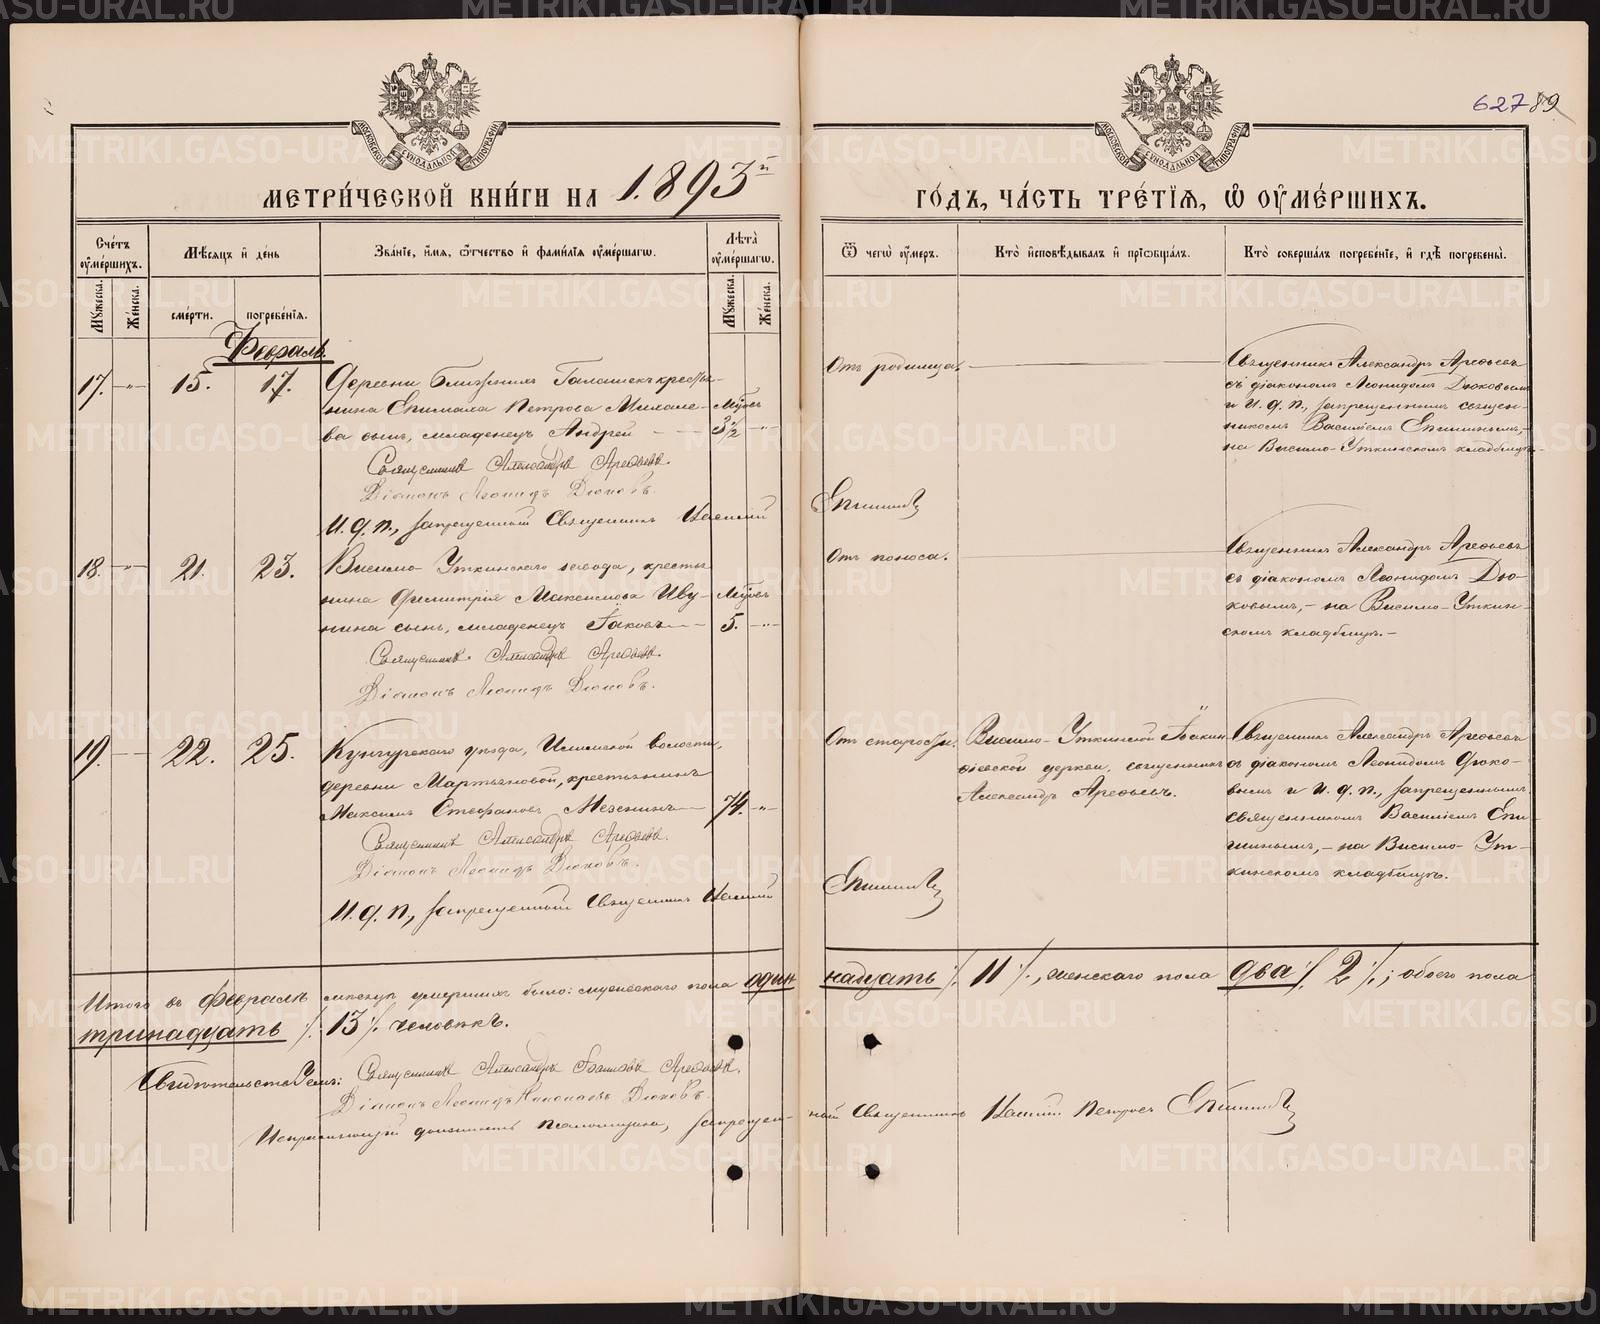 МОСКОВСКОЙ СѴНОДАЛЬНОЙ ТИПОГРАФІИ
МОСКОВСКОЙ СѴНОДАЛЬНОЙ ТИПОГРАФІИ
62789
МЕТРИЧЕСКОЙ КНИГИ НА 1893й
ГОДЪ, ЧАСТЬ ТРЕТІЯ, Ѿ ОУМЕРШИХЪ.
Счетъ оумершихъ.
Мѣсяцъ и день
Званіе, имя, отчество и фамилія оумершаго.
Лѣта оумершаго.
Ѿ чего оумеръ.
Кто исповѣдывалъ и пріобщалъ.
Кто совершалъ погребеніе, и гдѣ погребены.
Мужеска.
Женска.
смерти.
погребенія.
Мужеска.
Женска.
Февраль.
17. -„- 15. 17. Деревни Ближнихъ Галашекъ крестья-
нина Епимаха Петрова Михале- Мѣсъ
ва сынъ, младенецъ Андрей 3½ -„-
Священникъ Александръ Арефьевъ.
Діаконъ Леонидъ Дюковъ.
И. д. п., запрещенный Священникъ Василій
Епишинъ
Отъ родимца.
Священникъ Александръ Арефьевъ
съ діакономъ Леонидомъ Дюковымъ
и И. д. п., запрещеннымъ священ-
никомъ Василіемъ Епишинымъ,
на Висимо-Уткинскомъ кладбищѣ.
18. -„- 21. 23. Висимо-Уткинскаго завода, кресть-
янина Димитрія Максимова Иву- Мѣсъ
нина сынъ, младенецъ Іаковъ 5. -„-
Священникъ Александръ Арефьевъ.
Діаконъ Леонидъ Дюковъ.
Отъ поноса.
Священникъ Александръ Арефьевъ
съ діакономъ Леонидомъ Дю-
ковымъ, - на Висимо-Уткин-
скомъ кладбищѣ. -
19. 22. 25. Кунгурскаго уѣзда, Илимской волости,
деревни Мартьяновой, крестьянинъ
Максимъ Стефановъ Мезенинъ 74. -„-
Священникъ Александръ Арефьевъ.
Діаконъ Леонидъ Дюковъ.
И. д. п., запрещенный Священникъ Василій
Епишинъ
Отъ старости.
Висимо-Уткинской Іоакин-
фіевской церкви, священникъ
Александръ Арефьевъ.
Священникъ Александръ Арефьевъ
съ діакономъ Леонидомъ Дюко-
вымъ и И. д. п., запрещеннымъ
священникомъ Василіемъ Епи-
шинымъ, - на Висимо-Ут-
кинскомъ кладбищѣ.
Итого въ Февралѣ мѣсяцѣ умершихъ было: мужескаго пола одиннадцать /. 11 /., женскаго пола два /. 2 /.; обоего пола
тринадцать /. 13 /. человѣкъ.
Свидѣтельствуемъ: Священникъ Александръ Арефьевъ.
Діаконъ Леонидъ Дюковъ.
Исправляющій должность псаломщика, запрещенный Священникъ Василій Петровъ Епишинъ
METRIKI.GASO-URAL.RU